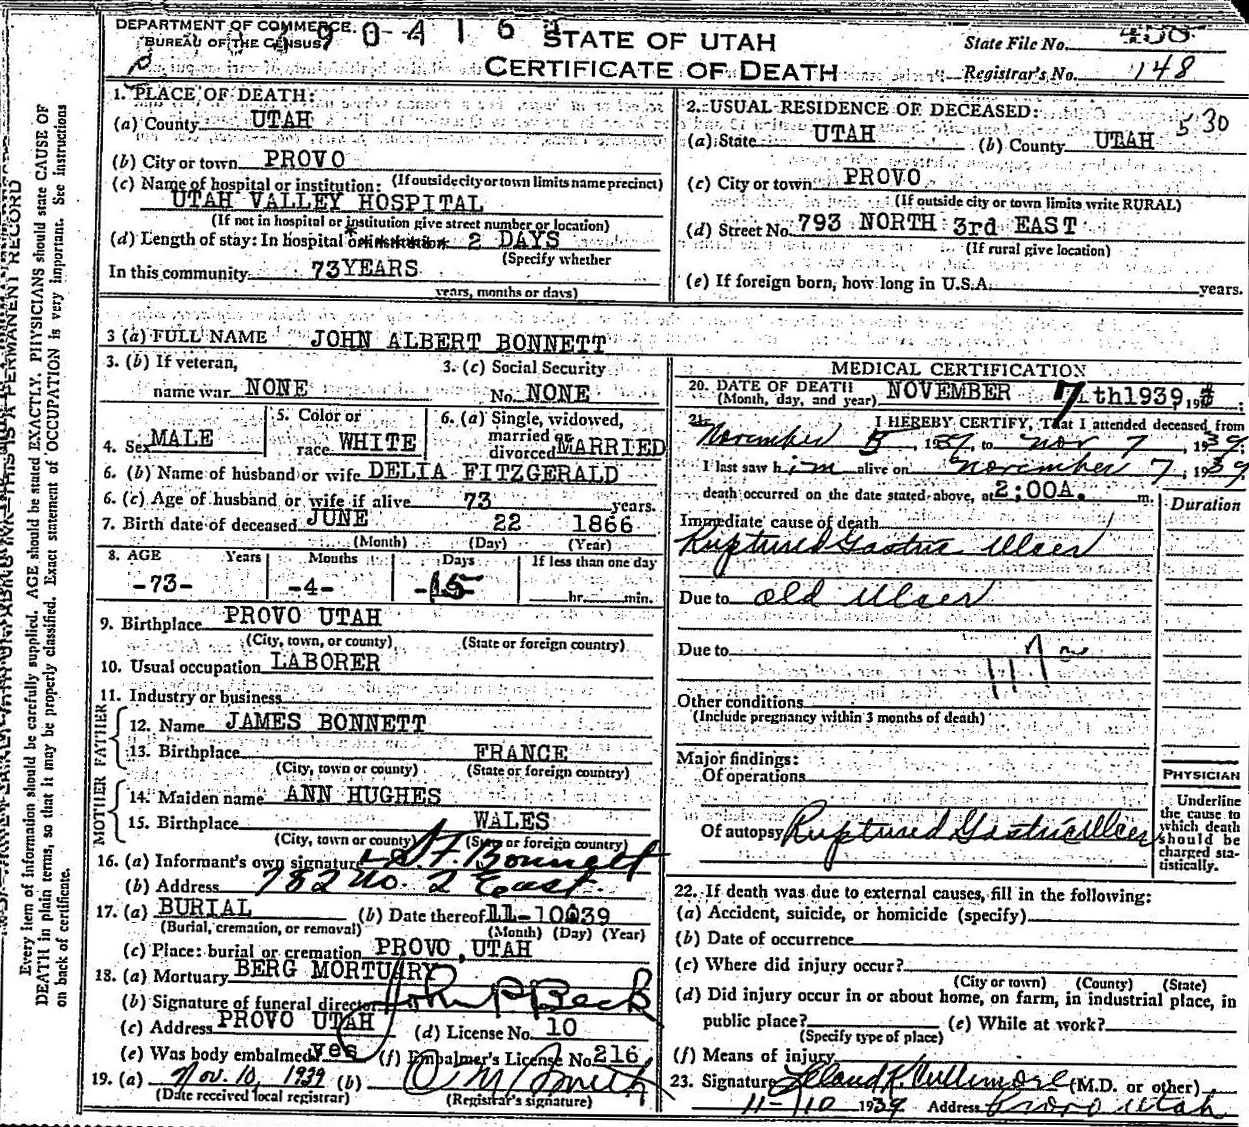 DEPARTMENT OF COMMERCE
BUREAU OF THE CENSUS
STATE OF UTAH
CERTIFICATE OF DEATH
State File No.
Registrar's No. 148
1. PLACE OF DEATH:
(a) County UTAH
(b) City or town PROVO
(If outside city or town limits name precinct)
(c) Name of hospital or institution:
UTAH VALLEY HOSPITAL
(If not in hospital or institution give street number or location)
(d) Length of stay: In hospital 2 DAYS
(Specify whether
In this community 73YEARS
years, months or days)
2. USUAL RESIDENCE OF DECEASED: 530
(a) State UTAH (b) County UTAH
(c) City or town PROVO
(If outside city or town limits write RURAL)
(d) Street No. 793 NORTH 3rd EAST
(If rural give location)
(e) If foreign born, how long in U.S.A. years.
3 (a) FULL NAME JOHN ALBERT BONNETT
3. (b) If veteran,
name war NONE
3. (c) Social Security
No. NONE
4. Sex MALE
5. Color or
race WHITE
6. (a) Single, widowed,
married or
divorced MARRIED
6. (b) Name of husband or wife DELIA FITZGERALD
6. (c) Age of husband or wife if alive 73 years.
7. Birth date of deceased JUNE 22 1866
(Month) (Day) (Year)
8. AGE Years Months Days If less than one day
-73- -4- -15- hr. min.
9. Birthplace PROVO UTAH
(City, town, or county) (State or foreign country)
10. Usual occupation LABORER
11. Industry or business
FATHER
12. Name JAMES BONNETT
13. Birthplace FRANCE
(City, town or county) (State or foreign country)
MOTHER
14. Maiden name ANN HUGHES
15. Birthplace WALES
(City, town or county) (State or foreign country)
16. (a) Informant's own signature S.F. Bonnett
(b) Address 782 No. 2 East
17. (a) BURIAL (b) Date thereof 11-10-39
(Burial, cremation, or removal) (Month) (Day) (Year)
(c) Place: burial or cremation PROVO, UTAH
18. (a) Mortuary BERG MORTUARY
(b) Signature of funeral director John P Beck
(c) Address PROVO UTAH (d) License No. 10
(e) Was body embalmed yes (f) Embalmer's License No. 216
19. (a) Nov. 10, 1939 (b)
(Date received local registrar) (Registrar's signature)
MEDICAL CERTIFICATION
20. DATE OF DEATH NOVEMBER 7th1939, 19
(Month, day, and year)
21. I HEREBY CERTIFY, That I attended deceased from
November 5, 1939 to Nov 7, 1939.
I last saw him alive on November 7, 1939
death occurred on the date stated above, at 2:00A. m.
Duration
Immediate cause of death
Ruptured Gastric Ulcer
Due to old Ulcer
Due to
Other conditions
(Include pregnancy within 3 months of death)
Major findings:
Of operations
Of autopsy Ruptured Gastric Ulcer
PHYSICIAN
Underline
the cause to
which death
should be
charged sta-
tistically.
22. If death was due to external causes, fill in the following:
(a) Accident, suicide, or homicide (specify)
(b) Date of occurrence
(c) Where did injury occur?
(City or town) (County) (State)
(d) Did injury occur in or about home, on farm, in industrial place, in
public place? (e) While at work?
(Specify type of place)
(f) Means of injury
23. Signature Leland K. Cullimore (M.D. or other)
11-10 1939 Address Provo Utah
Every item of information should be carefully supplied. AGE should be stated EXACTLY. PHYSICIANS should state CAUSE OF
DEATH in plain terms, so that it may be properly classified. Exact statement of OCCUPATION is very important. See instructions
on back of certificate.